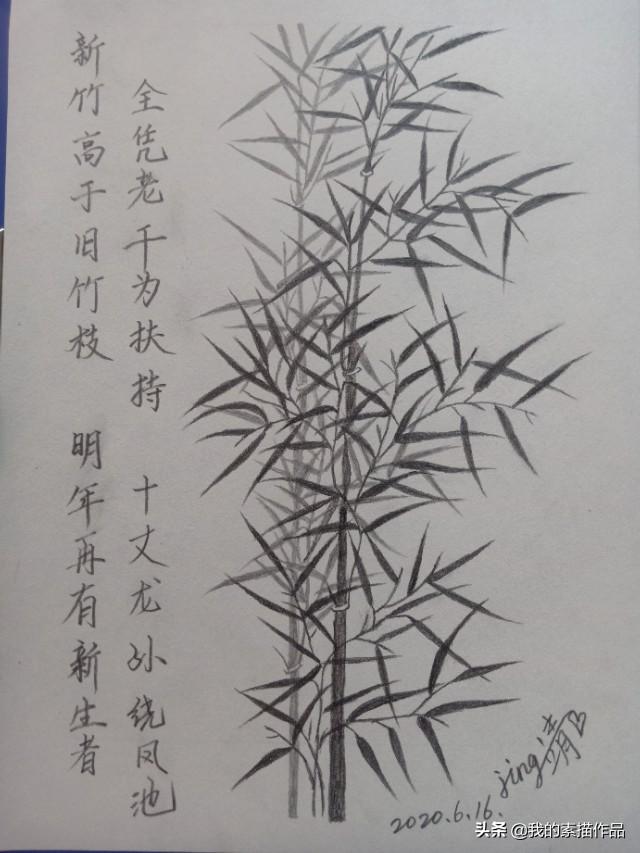 新竹高于旧竹枝
全凭老干为扶持
明年再有新生者
十丈龙孙绕凤池
jing
2020.6.16.
头条 @我的素描作品